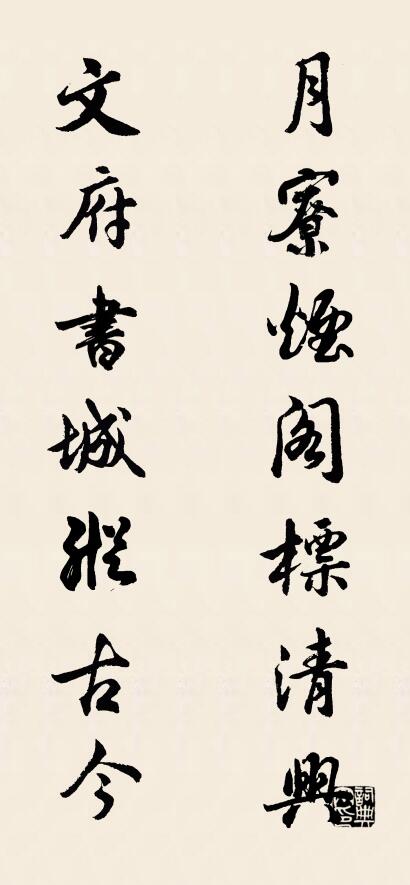 月寮煙阁標清興
文府書城縱古今
詞典